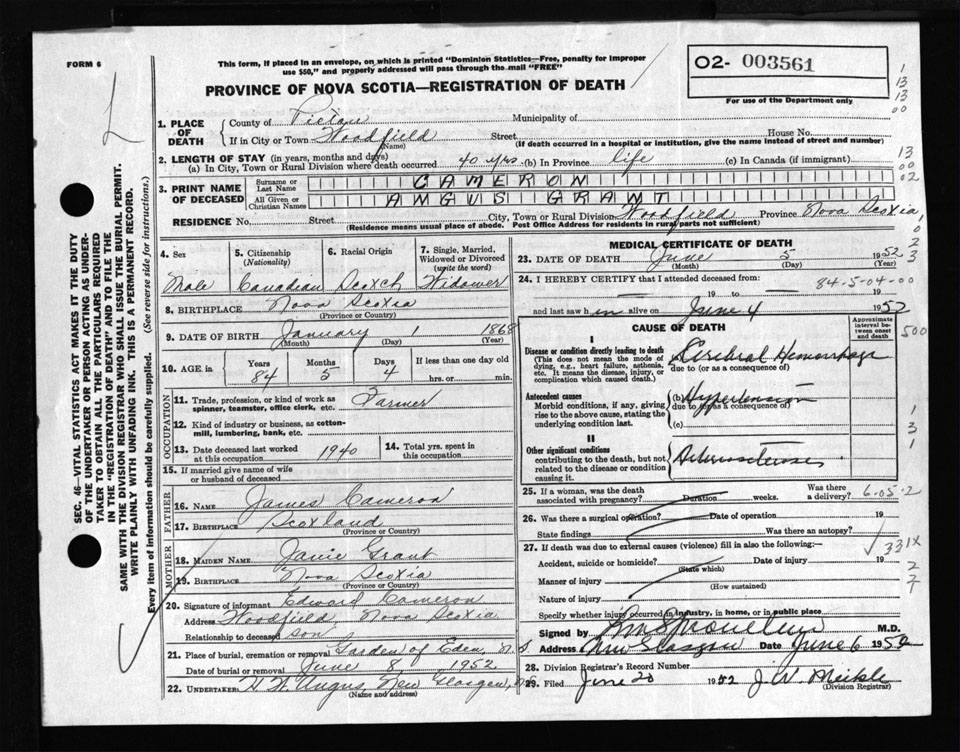 FORM 6
This form, if placed in an envelope, on which is printed "Dominion Statistics—Free, penalty for improper
use $50," and properly addressed will pass through the mail "FREE"
PROVINCE OF NOVA SCOTIA—REGISTRATION OF DEATH
O2- 003561
For use of the Department only
1. PLACE OF DEATH
County of Pictou Municipality of
If in City or Town Woodfield Street House No.
(Name) (If death occurred in a hospital or institution, give the name instead of street and number)
2. LENGTH OF STAY (in years, months and days)
(a) In City, Town or Rural Division where death occurred 40 yrs. (b) In Province life (c) In Canada (if immigrant)
3. PRINT NAME OF DECEASED
Surname or Last Name CAMERON
All Given or Christian Names ANGUS GRANT
RESIDENCE No. Street City, Town or Rural Division Woodfield Province Nova Scotia
(Residence means usual place of abode. Post Office Address for residents in rural parts not sufficient)
4. Sex
Male
5. Citizenship (Nationality)
Canadian
6. Racial Origin
Scotch
7. Single, Married, Widowed or Divorced (write the word)
Widower
8. BIRTHPLACE Nova Scotia
(Province or Country)
9. DATE OF BIRTH January 1 1868
(Month) (Day) (Year)
10. AGE in Years Months Days If less than one day
84 5 4 hrs. or min.
OCCUPATION
11. Trade, profession, or kind of work as spinner, teamster, office clerk, etc. Farmer
12. Kind of industry or business, as cotton-mill, lumbering, bank, etc.
13. Date deceased last worked at this occupation 1940
14. Total yrs. spent in this occupation
15. If married give name of wife or husband of deceased
FATHER
16. Name James Cameron
17. Birthplace Scotland
(Province or Country)
MOTHER
18. Maiden Name Janie Grant
19. Birthplace Nova Scotia
(Province or Country)
20. Signature of informant Edward Cameron
Address Woodfield, Nova Scotia
Relationship to deceased son
21. Place of burial, cremation or removal Garden of Eden, N.S.
Date of burial or removal June 8, 1952
22. UNDERTAKER: H. W. Angus New Glasgow, N.S.
(Name and address)
MEDICAL CERTIFICATE OF DEATH
23. DATE OF DEATH June 5 1952
(Month) (Day) (Year)
24. I HEREBY CERTIFY that I attended deceased from:
84-5-04-00
19 to 19
and last saw h im alive on June 4 1952
CAUSE OF DEATH
Approximate interval between onset and death
I
Disease or condition directly leading to death
(This does not mean the mode of dying, e.g., heart failure, asthenia, etc. It means the disease, injury, or complication which caused death.)
Cerebral Hemorrhage
due to (or as a consequence of)
Antecedent causes
Morbid conditions, if any, giving rise to the above cause, stating the underlying condition last.
(b) Hypertension
due to (or as a consequence of)
(c)
II
Other significant conditions
contributing to the death, but not related to the disease or condition causing it.
Arteriosclerosis
25. If a woman, was the death associated with pregnancy? Duration weeks. Was there a delivery?
6-05-2
26. Was there a surgical operation? Date of operation 19
State findings Was there an autopsy?
27. If death was due to external causes (violence) fill in also the following:—
Accident, suicide or homicide? Date of injury 19
(State which)
Manner of injury
(How sustained)
Nature of injury
Specify whether injury occurred in industry, in home, or in public place
Signed by M.D.
Address New Glasgow Date June 6 1952
28. Division Registrar's Record Number
29. Filed June 20 1952 J. W. Meikle
(Division Registrar)
331X
SEC. 46—VITAL STATISTICS ACT MAKES IT THE DUTY
OF THE UNDERTAKER OR PERSON ACTING AS UNDER-
TAKER TO OBTAIN ALL THE PARTICULARS REQUIRED
IN THE "REGISTRATION OF DEATH" AND TO FILE THE
SAME WITH THE DIVISION REGISTRAR WHO SHALL ISSUE THE BURIAL PERMIT.
WRITE PLAINLY WITH UNFADING INK. THIS IS A PERMANENT RECORD.
Every item of information should be carefully supplied. (See reverse side for instructions.)
1
13
13
00
13
00
02
500
1
3
1
2
7